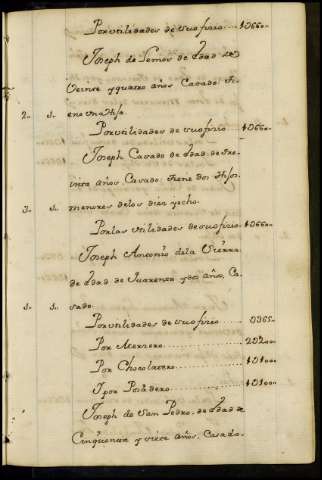 Por utilidades de su ofizio ... 1066„
Joseph de Lemos de Edad de
Veinte y quatro años Casado tie
2„ 1„ ene una Hija
Por utilidades de su ofizio ... 1066„
Joseph Casado de Edad de tre
inta años Casado tiene dos Hijos
3„ 1„ menores de los diez y ocho
Por las utilidades de su ofizio 1066„
Joseph Antonio de la Vierxa
de Edad de Quarenta y dos años, Ca
1„ 1„ sado
Por utilidades de su ofizio .... 0365„
Por Mesonero .............. 202„
Por Chocolatero ............ 101000„
Y por Posadero ............. 101000„
Joseph de San Pedro, de Edad de
Cinquenta y siete años, Casado„